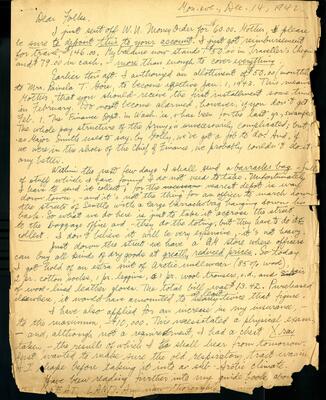 Mon. eve., Dec. 14, 1942
Dear Folks,
I just sent off W.U. Money Order for $60.00. Mother, & please
be sure to deposit this to your account. I just got reimbursement
for travel $146.00. My balance now stands $50.00 in Traveller's Cheques
and $79.00 in cash, more than enough to cover everything.
Earlier this aft. I authorized an allotment of $50.00/month
to Mrs. Pamela T. Bone, to become effective Jan. 1, 1943. This means,
Mother, that you should receive the first installment some time
in February. You must become alarmed, however, if you don't get it
Feb. 1. The Finance Dept. in Wash. is, & has been for the last yr., swamped.
The whole pay structure of the Army is unnecessarily complicated; but,
as Major Smalls used to say, "By Golly, we've got a job to do! And, if
we were in the shoes of the Chief of Finance, we probably couldn't do it
any better.
Within the next few days I shall send a barracks bag full
of stuff which I have found I will not need to take. Unfortunately
I have to send it collect; for the nearest depot is way
down town, and it's not the thing for an officer to march down
the streets of Seattle with a large barracks bag hanging down his
back. So what we do here is just to take it across the street
to the baggage office and they do the toting; but they have to be
collect. I don't believe it will be very expensive, it's not heavy.
Just down the street we have a QM store where officers
can buy all kinds of dry goods at greatly reduced prices. So today
I got hold of an extra suit of Arctic underwear (85% wool
in cotton), socks, pr. wool trousers, and
of wool-lined leather gloves. The total bill was $13.42. Purchased
elsewhere, it would have amounted to nearly twice that figure.
I have also applied for an increase in my insurance
to the maximum, $10,000. This necessitated a physical exam.,
and, although not a requirement, I had a chest X-ray
taken, the results of which I shall hear from tomorrow.
Just wanted to make sure the old respiratory tract was in
shape before taking it into a Arctic climate.
Have been reading further into my guide book about